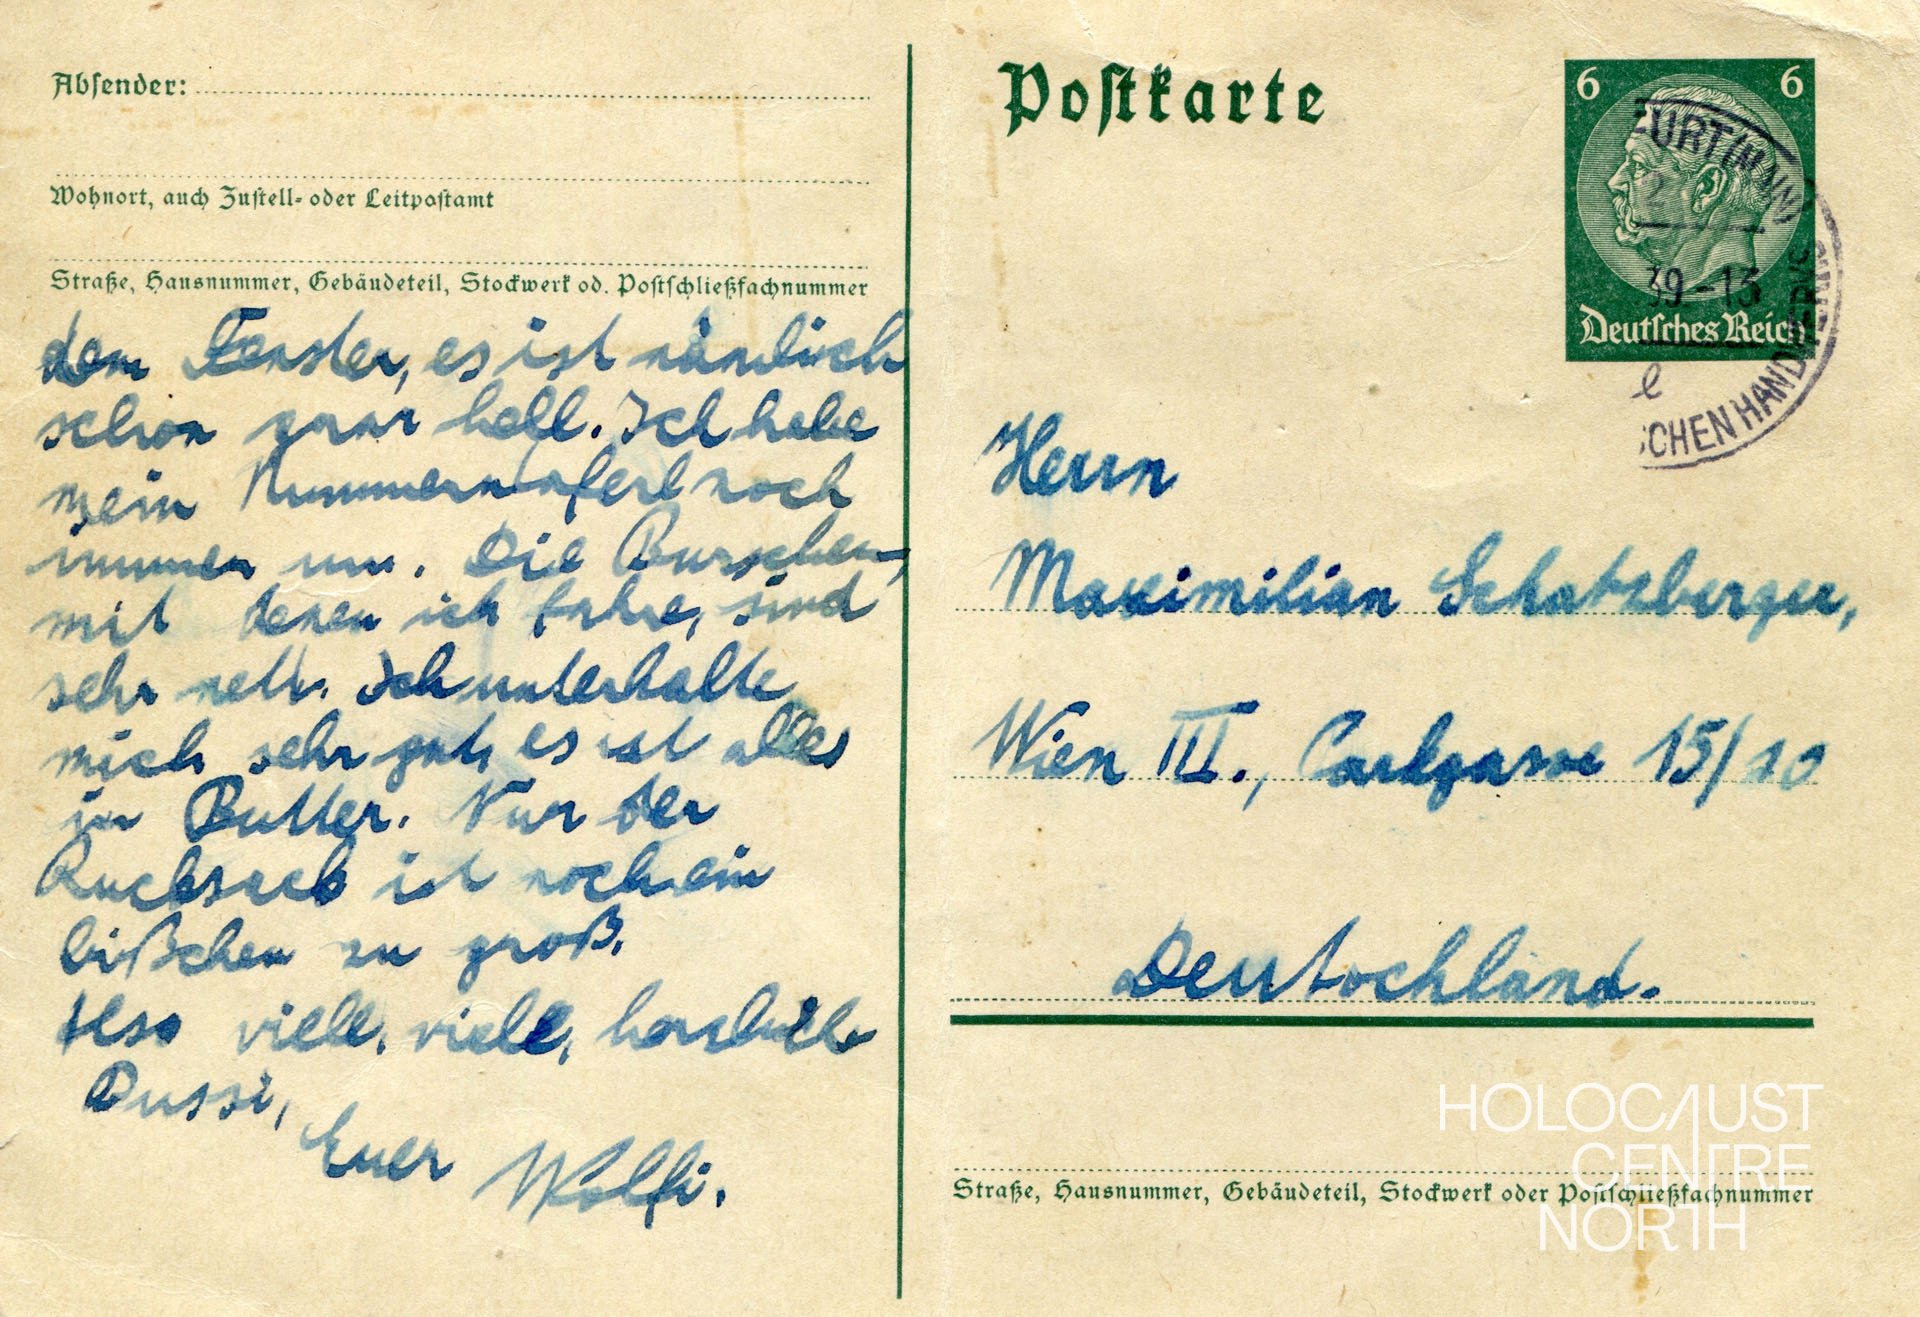 Absender:
Wohnort, auch Zustell- oder Leitpostamt
Straße, Hausnummer, Gebäudeteil, Stockwerk od. Postschließfachnummer
dem Fenster, es ist nämlich
schon ganz hell. Ich habe
mein Nummerntaferl noch
immer um. Die Burschen,
mit denen ich fahre, sind
sehr nett. Ich unterhalte
mich sehr gut, es ist alles
in Butter. Nur der
Rucksack ist noch ein
bißchen zu groß.
Also viele, viele, herzliche
Bussi,
Euer Wolfi.
Postkarte
6 6
URT (MAIN)
39-15
Deutsches Reich
e
SCHEN HAND
Herrn
Maximilian Schatzberger,
Wien III., Parkgasse 15/10
Deutschland.
Straße, Hausnummer, Gebäudeteil, Stockwerk oder Postschließfachnummer
HOLOCAUST
CENTRE
NORTH